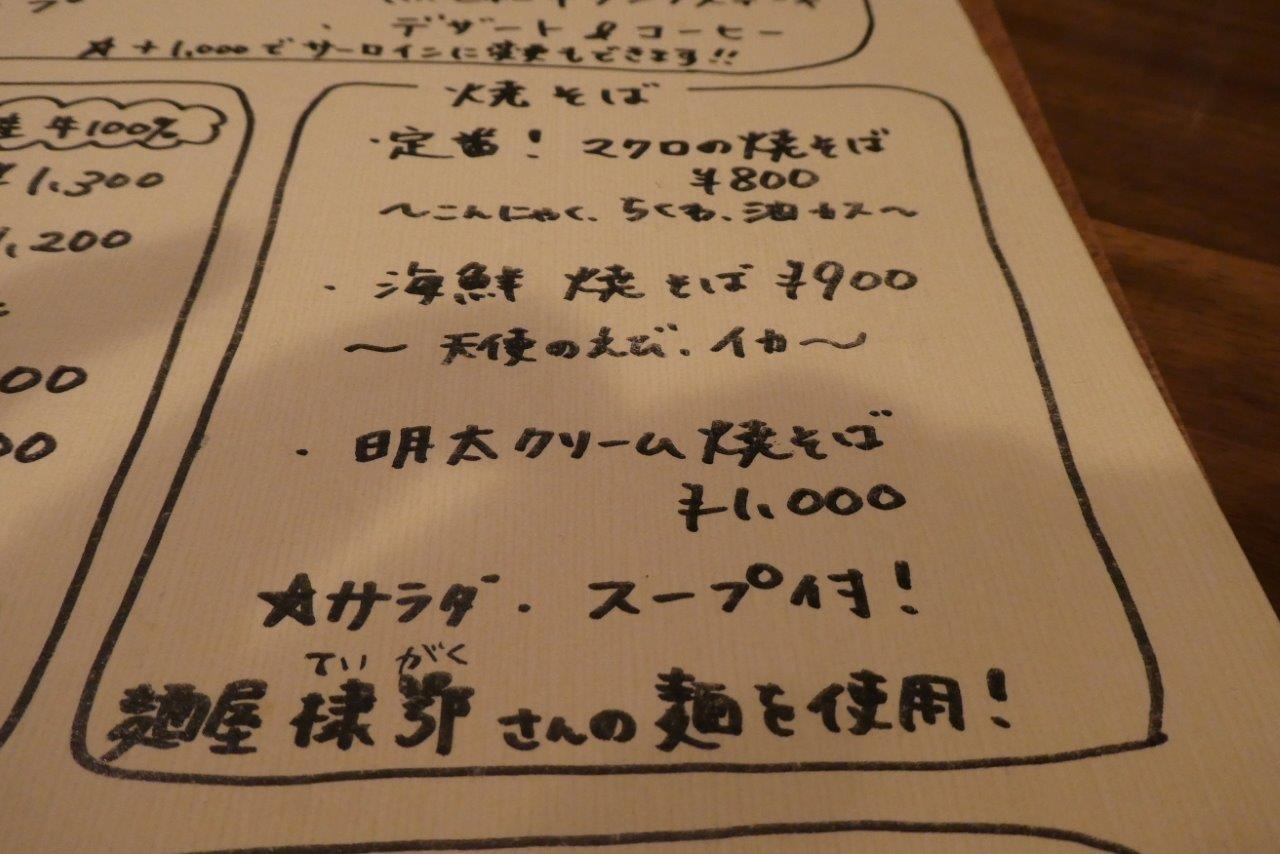 デザート & コーヒー
☆+1,000でサーロインに変更もできます!!
牛100%
¥1,300
,200
00
00
焼そば
・定番! マクロの焼そば
¥800
〜こんにゃく、ちくわ、油カス〜
・海鮮 焼そば ¥900
〜天使のえび、イカ〜
・明太クリーム焼そば
¥1,000
☆サラダ・スープ付!
ていがく
麺屋 棣鄂さんの麺を使用!